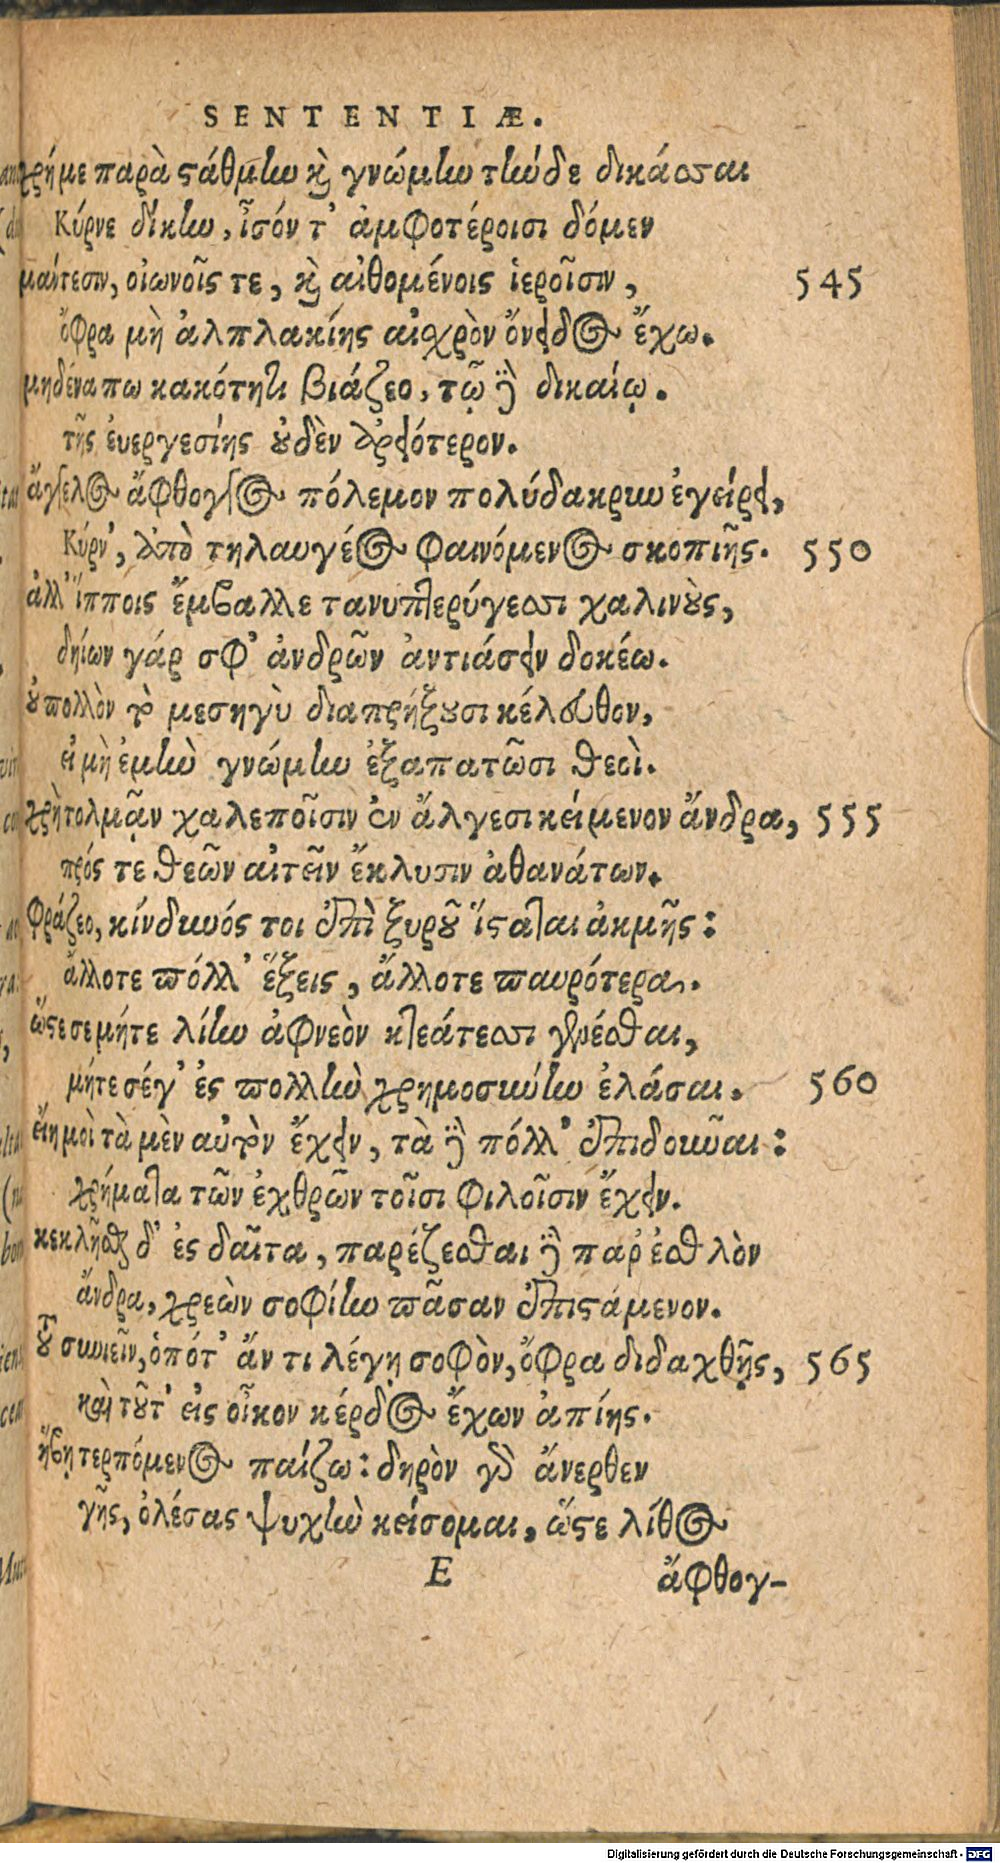 SENTENTIÆ.
χρή με παρὰ στάθμην καὶ γνώμην τήνδε δικάσσαι
Κύρνε δίκην, ἶσόν τ' ἀμφοτέροισι δόμεν
μάντεσιν, οἰωνοῖς τε, καὶ αἰθομένοις ἱεροῖσιν, 545
ὄφρα μὴ ἀλπλακίης αἰσχρὸν ὄνειδος ἔχω.
μηδένα πω κακότητι βιάζεο, τῷ δὲ δικαίῳ.
τῆς ἐυεργεσίης οὐδὲν ἀρειότερον.
ἄγγελος ἄφθογγος πόλεμον πολύδακρυν ἐγείρει,
Κύρν', ἀπὸ τηλαυγέος φαινόμενος σκοπιῆς. 550
ἀλλ' ἵπποις ἔμβαλλε τανυπτερύγεσσι χαλινοὺς,
δηίων γάρ σφ' ἀνδρῶν ἀντιάσειν δοκέω.
οὐ πολλὸν τὸ μεσηγὺ διαπρήξουσι κέλευθον,
εἰ μὴ ἐμὴν γνώμην ἐξαπατῶσι θεοὶ.
χρὴ τολμᾷν χαλεποῖσιν ἐν ἄλγεσι κείμενον ἄνδρα, 555
πρός τε θεῶν αἰτεῖν ἔκλυσιν ἀθανάτων.
Φράζεο, κίνδυνός τοι ἐπὶ ξυροῦ ἵσταται ἀκμῆς:
ἄλλοτε πόλλ' ἕξεις, ἄλλοτε παυρότερα.
ὥστε σε μήτε λίην ἀφνεὸν κτεάτεσσι γενέσθαι,
μήτε σέγ' ἐς πολλὴν χρημοσύνην ἐλάσαι. 560
εἴη μοὶ τὰ μὲν αὐτὸν ἔχειν, τὰ δὲ πόλλ' ἐπιδοῦναι:
χρήματα τῶν ἐχθρῶν τοῖσι φιλοῖσιν ἔχειν.
κεκλῆσθαι δ' ἐς δαῖτα, παρέζεσθαι δὲ παρ' ἐσθλὸν
ἄνδρα, χρεὼν σοφίην πᾶσαν ἐπιστάμενον.
τοῦ συνιεῖν, ὁπότ' ἄν τι λέγῃ σοφὸν, ὄφρα διδαχθῇς, 565
καὶ τοῦτ' εἰς οἶκον κέρδος ἔχων ἀπίης.
ἥβῃ τερπόμενος παίζω: δηρὸν γὰρ ἄνερθεν
γῆς, ὀλέσας ψυχὴν κείσομαι, ὥστε λίθος
E ἄφθογ-
Digitalisierung gefördert durch die Deutsche Forschungsgemeinschaft - DFG